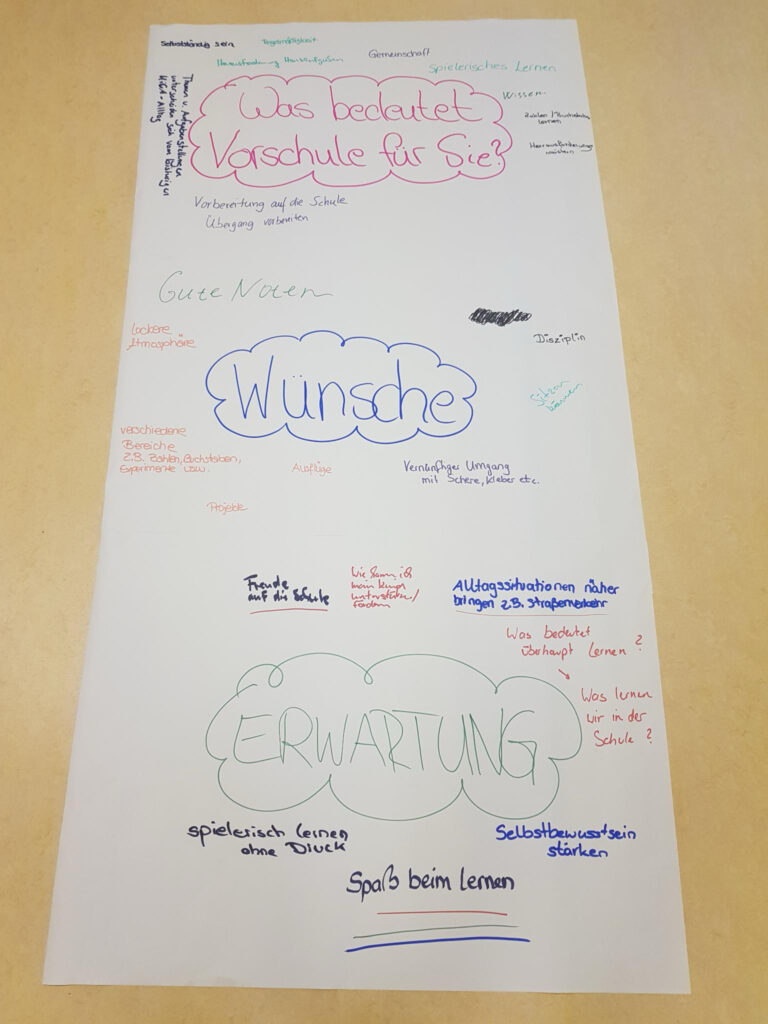 Selbstständig sein
Regelmäßigkeit
Gemeinschaft
Herausforderung
spielerisches Lernen
Wissen
Zahlen / Buchstaben
lernen
Themen u. Aufgabenstellungen
unterscheiden sich vom bisherigen
KiGa-Alltag
Was bedeutet
Vorschule für Sie?
Vorbereitung auf die Schule
Übergang vorbereiten
Gute Noten
lockere
Atmosphäre
Disziplin
Sitzen
können
Wünsche
verschiedene
Bereiche
z.B. Zahlen, Buchstaben,
Experimente usw.
Ausflüge
Vernünftiger Umgang
mit Schere, Kleber etc.
Projekte
Freude
auf die Schule
Wie kann ich
mein Kind
unterstützen/
fördern
Alltagssituationen näher
bringen z.B. Straßenverkehr
Was bedeutet
überhaupt Lernen?
Was lernen
wir in der
Schule?
ERWARTUNG
spielerisch lernen
ohne Druck
Selbstbewusstsein
stärken
Spaß beim lernen